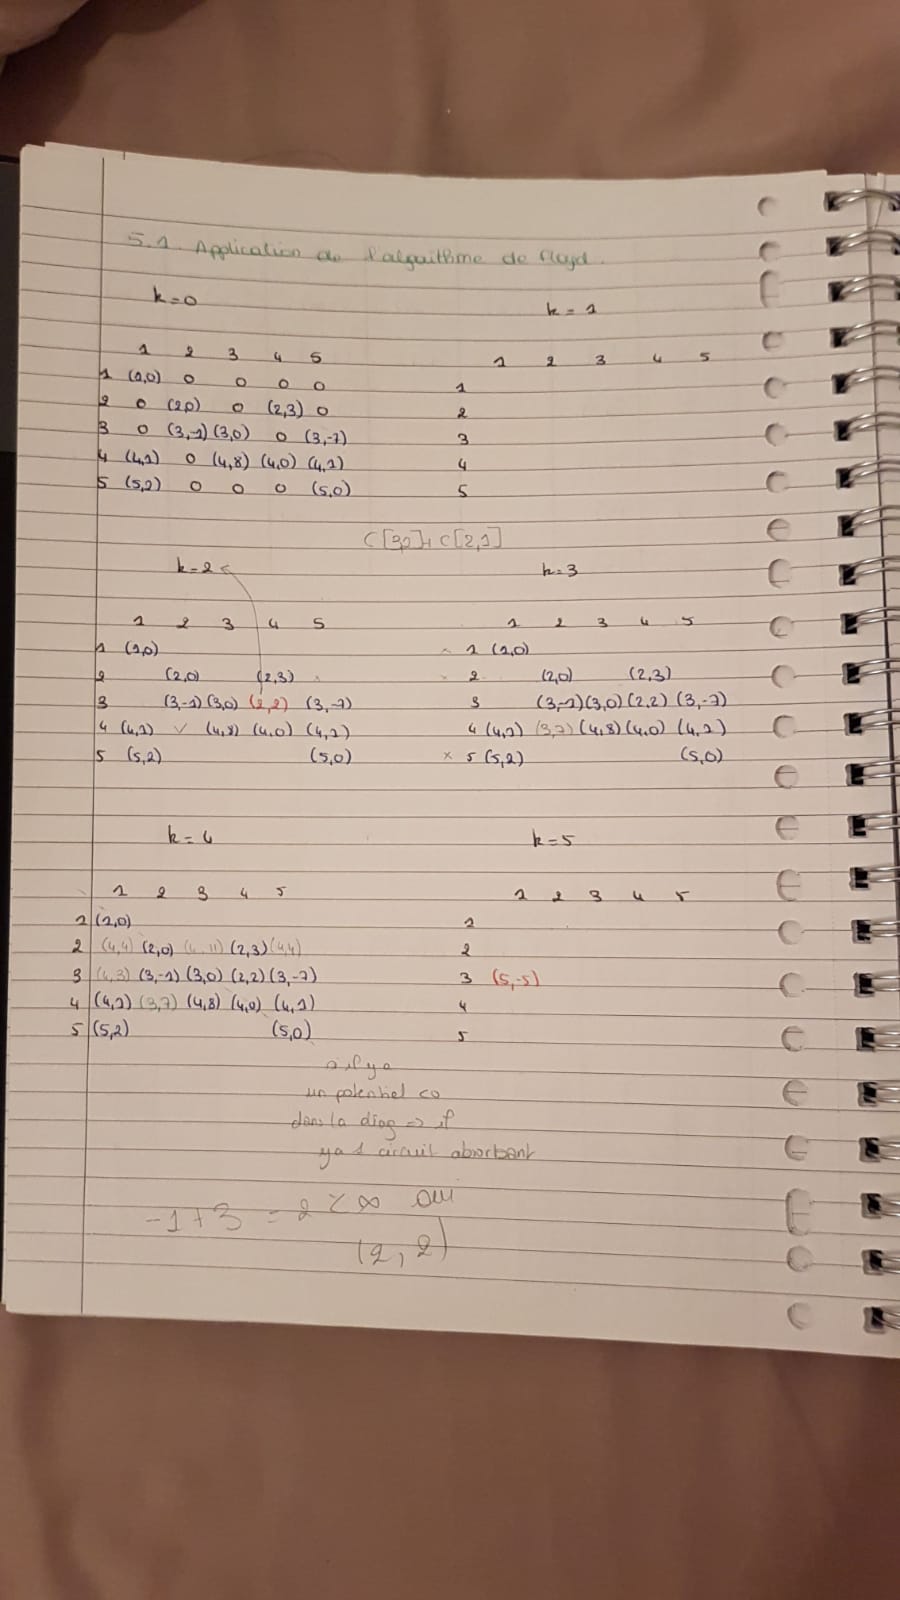 5.1. Application de l'algorithme de Floyd.
k=0
k=1
1 2 3 4 5
1 (1,0) 0 0 0 0
2 0 (2,0) 0 (2,3) 0
3 0 (3,-1) (3,0) 0 (3,-7)
4 (4,1) 0 (4,8) (4,0) (4,1)
5 (5,2) 0 0 0 (5,0)
1 2 3 4 5
1
2
3
4
5
C[3,2]+C[2,1]
k=2
k=3
1 2 3 4 5
1 (1,0)
2 (2,0) (2,3)
3 (3,-1) (3,0) (2,2) (3,-7)
4 (4,1) (4,8) (4,0) (4,1)
5 (5,2) (5,0)
1 2 3 4 5
1 (1,0)
2 (2,0) (2,3)
3 (3,-1) (3,0) (2,2) (3,-7)
4 (4,1) (3,7) (4,8) (4,0) (4,1)
x 5 (5,2) (5,0)
k=4
k=5
1 2 3 4 5
1 (1,0)
2 (4,4) (2,0) (4,11) (2,3) (4,4)
3 (4,3) (3,-1) (3,0) (2,2) (3,-7)
4 (4,1) (3,7) (4,8) (4,0) (4,1)
5 (5,2) (5,0)
1 2 3 4 5
1
2
3 (5,-5)
4
5
il y a
un potentiel <0
dans la diag => il
y a 1 circuit absorbant
-1+3 = 2 < ∞ oui
(2,2)